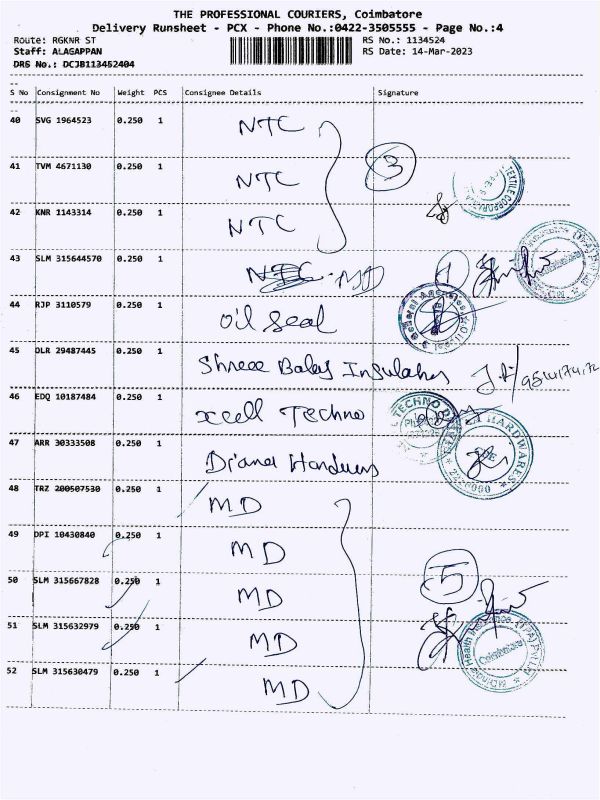 THE PROFESSIONAL COURIERS, Coimbatore
Delivery Runsheet - PCX - Phone No.:0422-3505555 - Page No.:4
Route: RGKNR ST RS No.: 1134524
Staff: ALAGAPPAN RS Date: 14-Mar-2023
DRS No.: DCJB113452404
S No Consignment No Weight PCS Consignee Details Signature
40 SVG 1964523 0.250 1 NTC
41 TVM 4671130 0.250 1 NTC 3
42 KNR 1143314 0.250 1 NTC
43 SLM 315644570 0.250 1 MD 1
44 RJP 3110579 0.250 1 oil seal
45 DLR 29487445 0.250 1 Shree Balaj Insulation
46 EDQ 10187484 0.250 1 xcell Techno
47 ARR 30333508 0.250 1 Diana
48 TRZ 200507530 0.250 1 MD
49 DPI 10430840 0.250 1 MD
50 SLM 315667828 0.250 1 MD 5
51 SLM 315632979 0.250 1 MD
52 SLM 315630479 0.250 1 MD
TECHNO
HARDWARES
Coimbatore